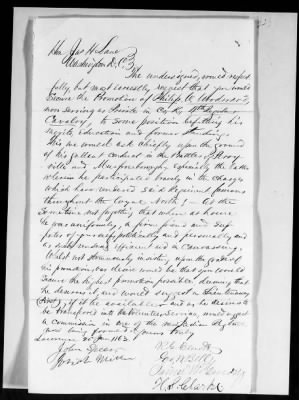 Hon Jas H Lane
Washington D. C.
The undersigned, would respect
fully, but most earnestly suggest that you would
Secure the Promotion of Philip W. Woodward,
now serving as Private in Co. 4th Regular
Cavalry, to some position befitting his
merits, education and former standing.
This we would ask chiefly upon the ground
of his gallant conduct in the battles of Perry
ville and Murfreesborough, especially the latter
wherein he participated bravely in the charge
which have rendered said Regiment famous
throughout the loyal North; — at the
same time not forgetting that when at home
he was uniformly a firm friend and sup
porter of yourself politically and personally and
as such rendered efficient aid in Canvassing.
Whilst not strenuously insisting upon the grade of
his promotion, our desire would be that you would
secure the highest promotion possible, deeming that
he deserves it, and would suggest a Lieutenancy
if it be available and as he desires to
be transferred into the Volunteer Service, would suggest
a commission in one of the new Indian Regiments
now being formed. Yours truly
Lawrence 30 Jan 1863
John Speer
Josiah Miller
Geo W
H. S. Clarke